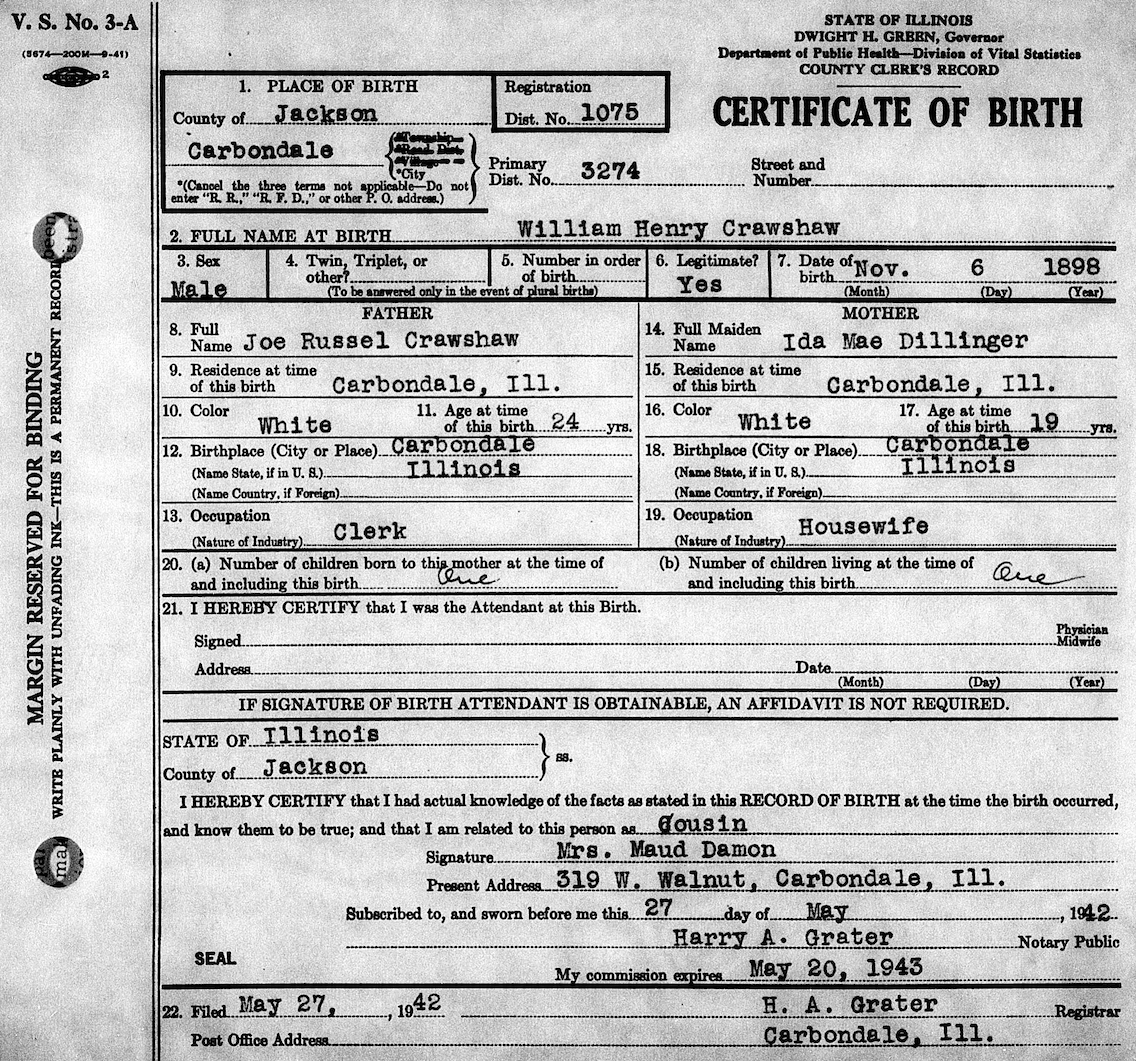 V. S. No. 3-A
(5674—200M—9-41)
2
STATE OF ILLINOIS
DWIGHT H. GREEN, Governor
Department of Public Health—Division of Vital Statistics
COUNTY CLERK'S RECORD
CERTIFICATE OF BIRTH
1. PLACE OF BIRTH
County of Jackson
Registration
Dist. No. 1075
Carbondale
*Township
*Road Dist.
*Village
*City
*(Cancel the three terms not applicable—Do not
enter "R. R.," "R. F. D.," or other P. O. address.)
Primary
Dist. No. 3274
Street and
Number
2. FULL NAME AT BIRTH William Henry Crawshaw
3. Sex
Male
4. Twin, Triplet, or
other?
5. Number in order
of birth
(To be answered only in the event of plural births)
6. Legitimate?
Yes
7. Date of
birth Nov. 6 1898
(Month) (Day) (Year)
FATHER
8. Full
Name Joe Russel Crawshaw
9. Residence at time
of this birth Carbondale, Ill.
10. Color
White
11. Age at time
of this birth 24 yrs.
12. Birthplace (City or Place) Carbondale
(Name State, if in U. S.) Illinois
(Name Country, if Foreign)
13. Occupation
(Nature of Industry) Clerk
MOTHER
14. Full Maiden
Name Ida Mae Dillinger
15. Residence at time
of this birth Carbondale, Ill.
16. Color
White
17. Age at time
of this birth 19 yrs.
18. Birthplace (City or Place) Carbondale
(Name State, if in U. S.) Illinois
(Name Country, if Foreign)
19. Occupation
(Nature of Industry) Housewife
20. (a) Number of children born to this mother at the time of
and including this birth One
(b) Number of children living at the time of
and including this birth One
21. I HEREBY CERTIFY that I was the Attendant at this Birth.
Signed Physician
Midwife
Address Date
(Month) (Day) (Year)
IF SIGNATURE OF BIRTH ATTENDANT IS OBTAINABLE, AN AFFIDAVIT IS NOT REQUIRED.
STATE OF Illinois
County of Jackson
ss.
I HEREBY CERTIFY that I had actual knowledge of the facts as stated in this RECORD OF BIRTH at the time the birth occurred,
and know them to be true; and that I am related to this person as Cousin
Signature Mrs. Maud Damon
Present Address 319 W. Walnut, Carbondale, Ill.
Subscribed to, and sworn before me this 27 day of May, 1942
Harry A. Grater Notary Public
SEAL
My commission expires May 20, 1943
22. Filed May 27, , 1942 H. A. Grater Registrar
Post Office Address Carbondale, Ill.
MARGIN RESERVED FOR BINDING
WRITE PLAINLY WITH UNFADING INK—THIS IS A PERMANENT RECORD